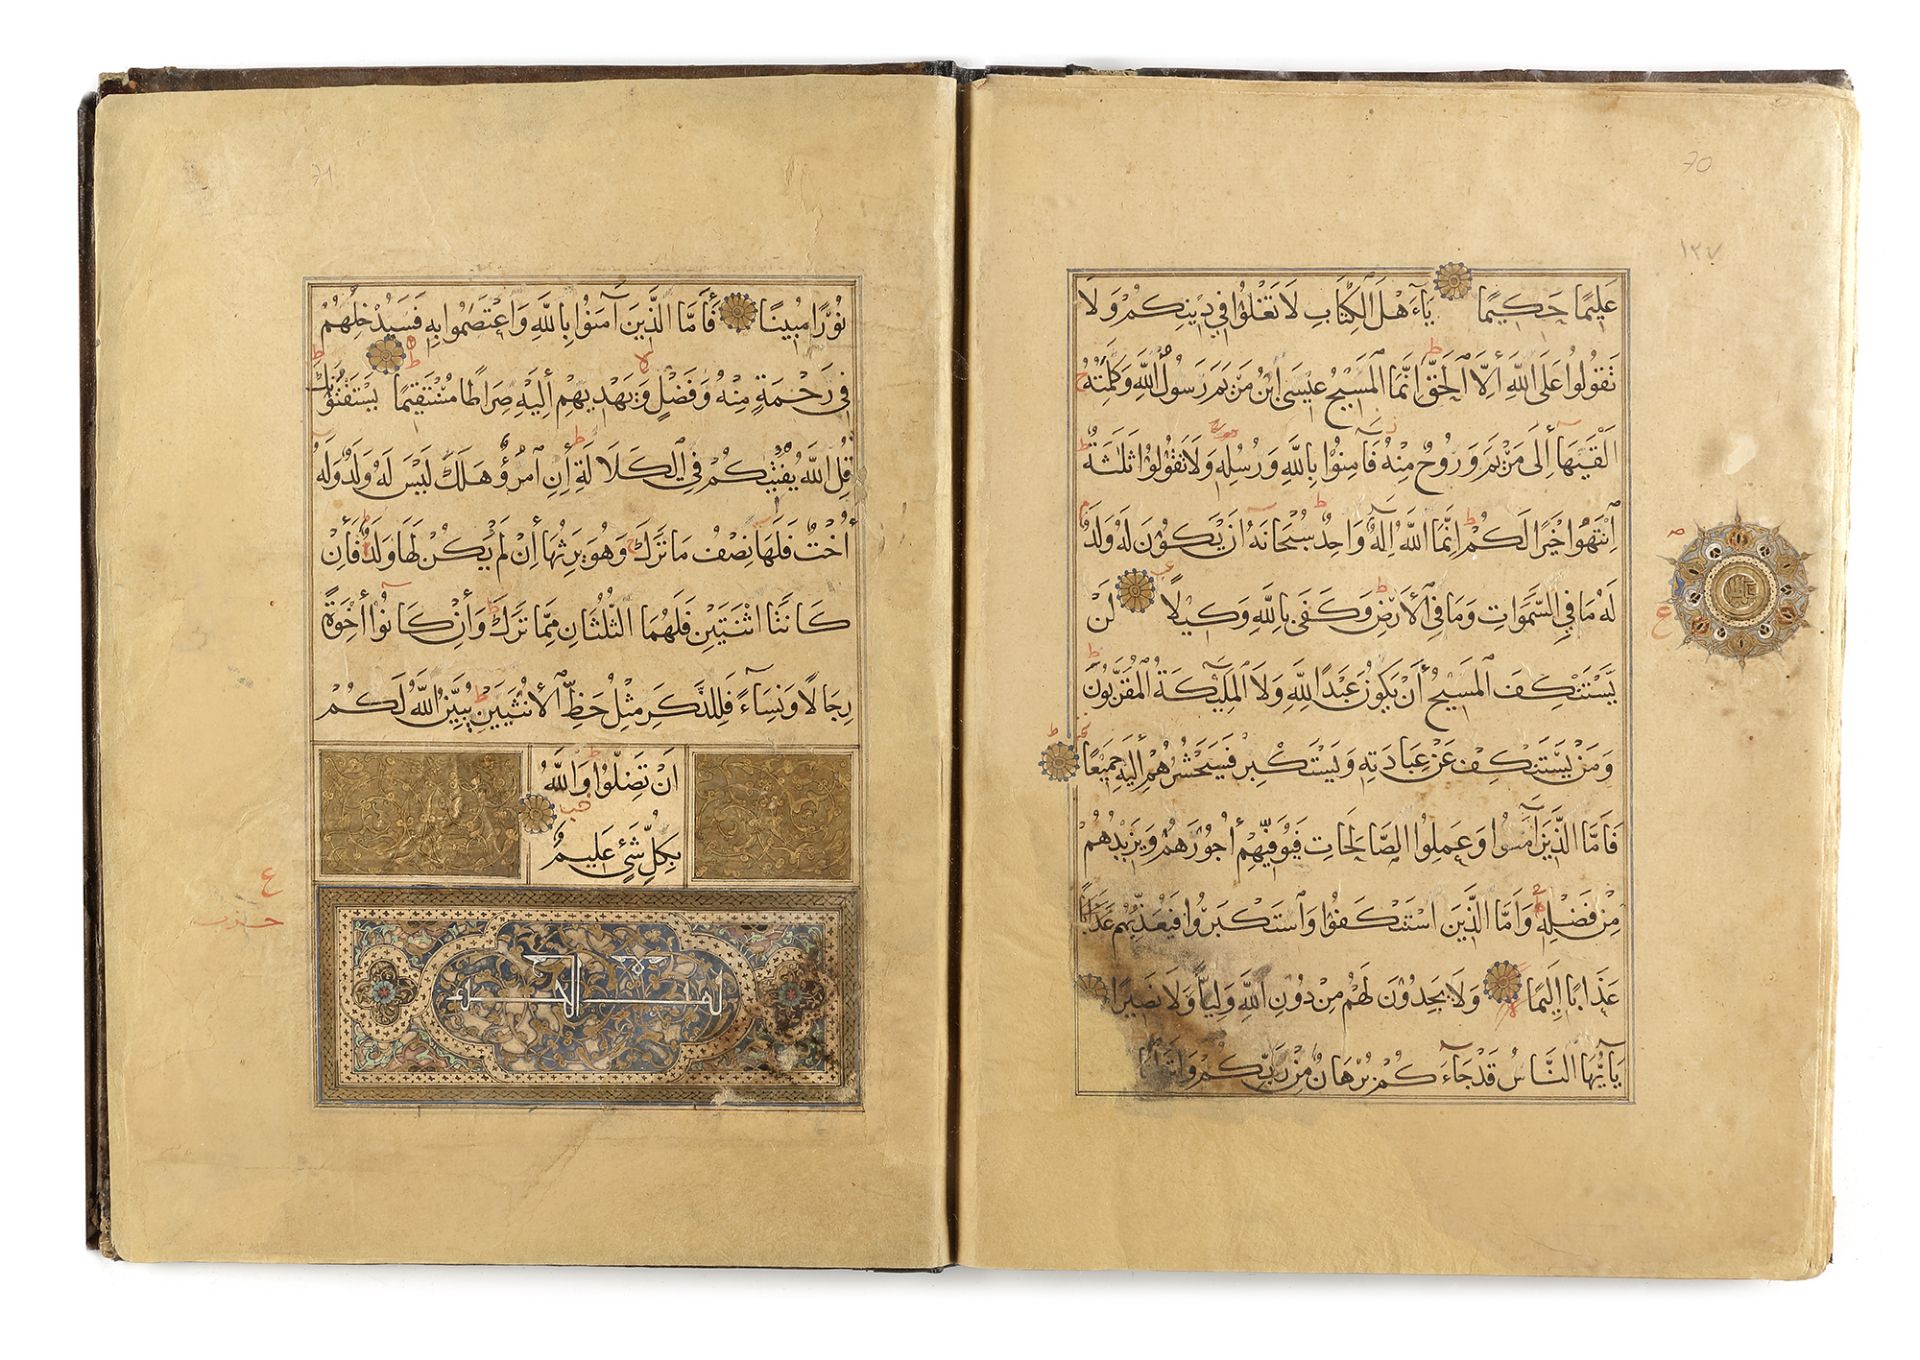 70
١٣٧
عَلِيمًا حَكِيمًا يَاءَهْلَ الْكِتَابِ لَا تَغْلُوا فِي دِينِكُمْ وَلَا
تَقُولُوا عَلَى اللَّهِ أِلَّا الْحَقَّ اِنَّمَا الْمَسِيحُ عِيسَى ابْنُ مَرْيَمَ رَسُولُ اللَّهِ وَكَلِمَتُهُ
اَلْقَيهَا أِلَى مَرْيَمَ وَرُوحٌ مِنْهُ فَآمِنُوا بِاللَّهِ وَرُسُلِهِ وَلَا تَقُولُوا ثَلَثَةٌ
اِنْتَهُوا خَيْرًا لَكُمْ اِنَّمَا اللَّهُ اِلَهٌ وَاحِدٌ سُبْحَانَهُ أَنْ يَكُونَ لَهُ وَلَدٌ
لَهُ مَا فِي السَّمَوَاتِ وَمَا فِي الْأَرْضِ وَكَفَى بِاللَّهِ وَكِيلًا لَنْ
يَسْتَنْكِفَ الْمَسِيحُ أَنْ يَكُونَ عَبْدًا لِلَّهِ وَلَا الْمَلَئِكَةُ الْمُقَرَّبُونَ
وَمَنْ يَسْتَنْكِفْ عَنْ عِبَادَتِهِ وَيَسْتَكْبِرْ فَسَيَحْشُرُهُمْ أِلَيْهِ جَمِيعًا
فَأَمَّا الَّذِينَ آمَنُوا وَعَمِلُوا الصَّالِحَاتِ فَيُوَفِّيهِمْ أُجُورَهُمْ وَيَزِيدُهُمْ
مِنْ فَضْلِهِ وَاَمَّا الَّذِينَ اسْتَنْكَفُوا وَاسْتَكْبَرُوا فَيُعَذِّبُهُمْ عَذَابًا
عَذَابًا اَلِيمًا وَلَا يَجِدُونَ لَهُمْ مِنْ دُونِ اللَّهِ وَلِيًّا وَلَا نَصِيرًا
يَآ أَيُّهَا النَّاسُ قَدْ جَآءَكُمْ بُرْهَانٌ مِنْ رَبِّكُمْ وَاَنْزَلْنَا
71
نُورًا مُبِينًا فَأَمَّا الَّذِينَ آمَنُوا بِاللَّهِ وَاعْتَصَمُوا بِهِ فَسَيُدْخِلُهُمْ
فِي رَحْمَةٍ مِنْهُ وَفَضْلٍ وَيَهْدِيهِمْ أِلَيْهِ صِرَاطًا مُسْتَقِيمًا يَسْتَفْتُونَكَ
قُلِ اللَّهُ يُفْتِيكُمْ فِي الْكَلَالَةِ أِنِ امْرُؤٌ هَلَكَ لَيْسَ لَهُ وَلَدٌ وَلَهُ
أُخْتٌ فَلَهَا نِصْفُ مَا تَرَكَ وَهُوَ يَرِثُهَا أِنْ لَمْ يَكُنْ لَهَا وَلَدٌ فَأِنْ
كَانَتَا اثْنَتَيْنِ فَلَهُمَا الثُّلُثَانِ مِمَّا تَرَكَ وَأِنْ كَانُوا أِخْوَةً
رِجَالًا وَنِسَاءً فَلِلذَّكَرِ مِثْلُ حَظِّ الْأُنْثَيَيْنِ يُبَيِّنُ اللَّهُ لَكُمْ
اَنْ تَضِلُّوا وَاللَّهُ
بِكُلِّ شَيْءٍ عَلِيمٌ